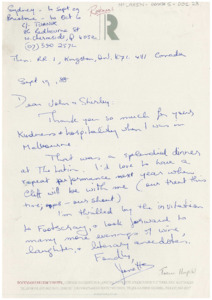 Sydney - to Sept 29
Brisbane - to Oct 6
Then: RR 1, Kingston, Ont. K7L 4V1 Canada
Sept 29,
Dear John & Shirley,
Thank you so much for your
kindness & hospitality when I was in
Melbourne
That was a splendid dinner
at The Latin. I'd love to have a
repeat performance next year when
Cliff will be with me (our treat this
time, - our shout)
I'm thrilled by the invitation
to Footscray, & look forward to
many more evenings of wine,
laughter & literary anecdotes.
Fondly,
Janette